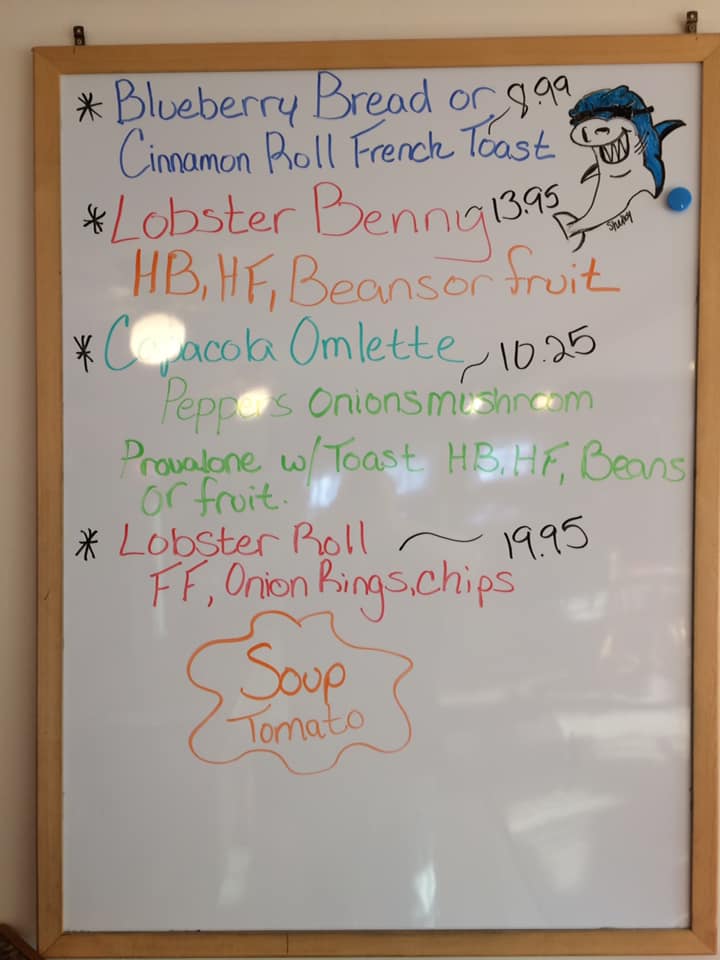 * Blueberry Bread or 8.99
Cinnamon Roll French Toast
* Lobster Benny ~ 13.95
HB, HF, Beans or fruit
* Capacola Omlette ~ 10.25
Peppers Onions mushroom
Provalone w/ Toast HB, HF, Beans
or fruit.
* Lobster Roll ~ 19.95
FF, Onion Rings, chips
Soup
Tomato